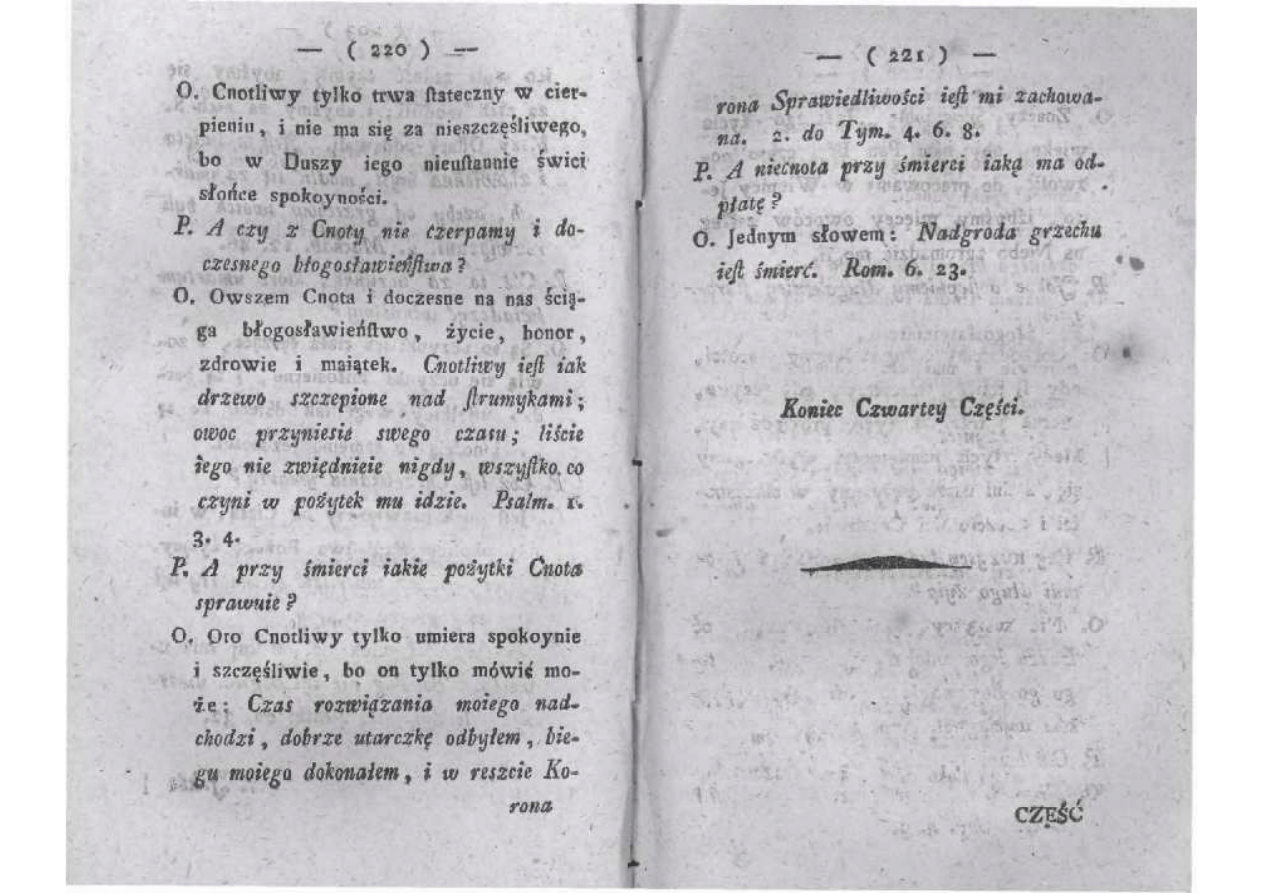 — ( 220 ) —
O. Cnotliwy tylko trwa ſtateczny w cier-
pieniu, i nie ma się za nieszczęśliwego,
bo w Duszy iego nieuſtannie świci
słońce spokoyności.
P. A czy z Cnoty nie czerpamy i do-
czesnego błogosławieńſtwa?
O. Owszem Cnota i doczesne na nas ścią-
ga błogosławieńſtwo, życie, honor,
zdrowie i maiątek. Cnotliwy ieſt iak
drzewo szczepione nad ſtrumykami;
owoc przyniesie swego czasu; liście
iego nie zwiędnieie nigdy, wszyſtko co
czyni w pożytek mu idzie. Psalm. 1.
3. 4.
P. A przy śmierci iakie pożytki Cnota
sprawuie?
O. Oto Cnotliwy tylko umiera spokoynie
i szczęśliwie, bo on tylko mówić mo-
że: Czas rozwiązania moiego nad-
chodzi, dobrze utarczkę odbyłem, bie-
gu moiego dokonałem, i w reszcie Ko-
rona
— ( 221 ) —
rona Sprawiedliwości ieſt mi zachowa-
na. 2. do Tym. 4. 6. 8.
P. A niecnota przy śmierci iaką ma od-
płatę?
O. Jednym słowem: Nadgroda grzechu
ieſt śmierć. Rom. 6. 23.
Koniec Czwartey Części.
CZĘŚĆ